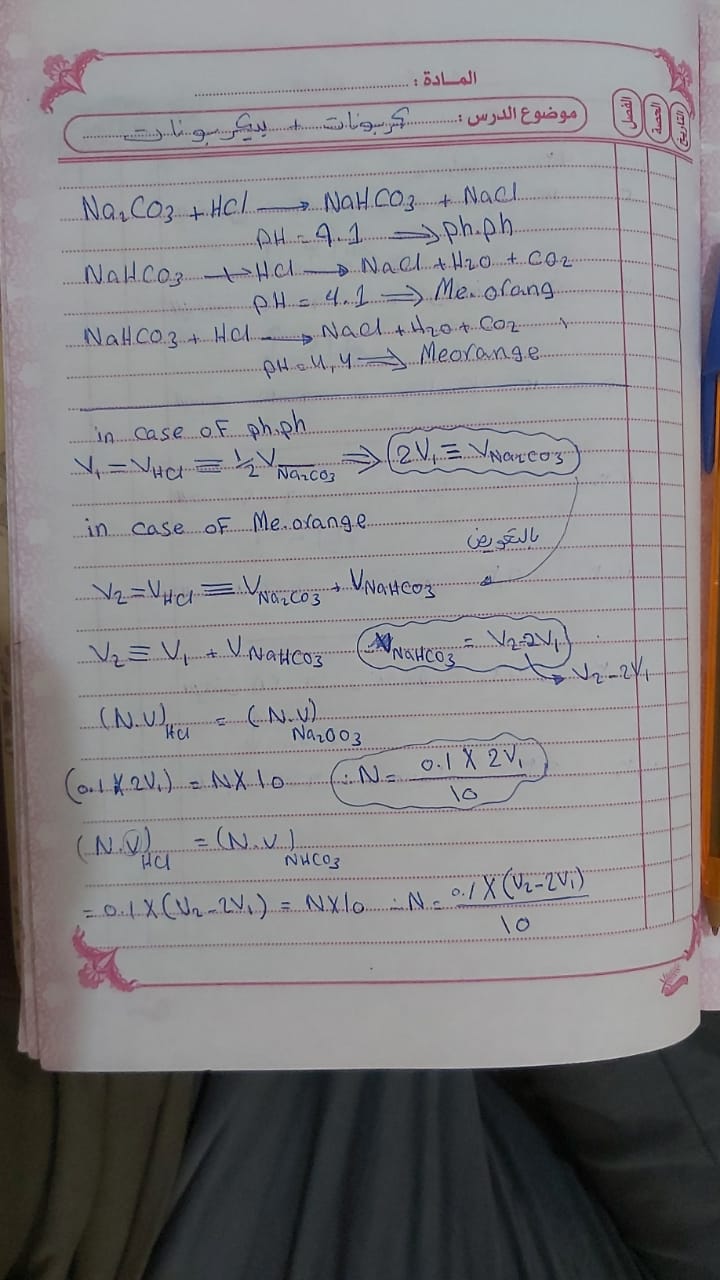 المــادة :
موضوع الدرس : كربونات + بيكربونات
الفصل
الحصة
التاريخ
Na2CO3 + HCl → NaHCO3 + NaCl
pH = 9.1 ⇒ ph.ph
NaHCO3 + HCl → NaCl + H2O + CO2
pH = 4.1 ⇒ Me.orang
NaHCO3 + HCl → NaCl + H2O + CO2
pH = 4,4 ⇒ Meorange
in case of ph.ph
V1 = VHCl ≡ ½ VNa2CO3 ⇒ 2V1 ≡ VNa2CO3
in case of Me.orange
بالتعويض
V2 = VHCl ≡ VNa2CO3 + VNaHCO3
V2 ≡ V1 + VNaHCO3 VNaHCO3 = V2-2V1
V2-2V1
(N.V)HCl = (N.V)Na2CO3
(0.1 X 2V1) = N X 10 ∴ N = 0.1 X 2V1 / 10
(N.V)HCl = (N.V)NHCO3
= 0.1 X (V2-2V1) = N X 10 ∴ N = 0.1 X (V2-2V1) / 10